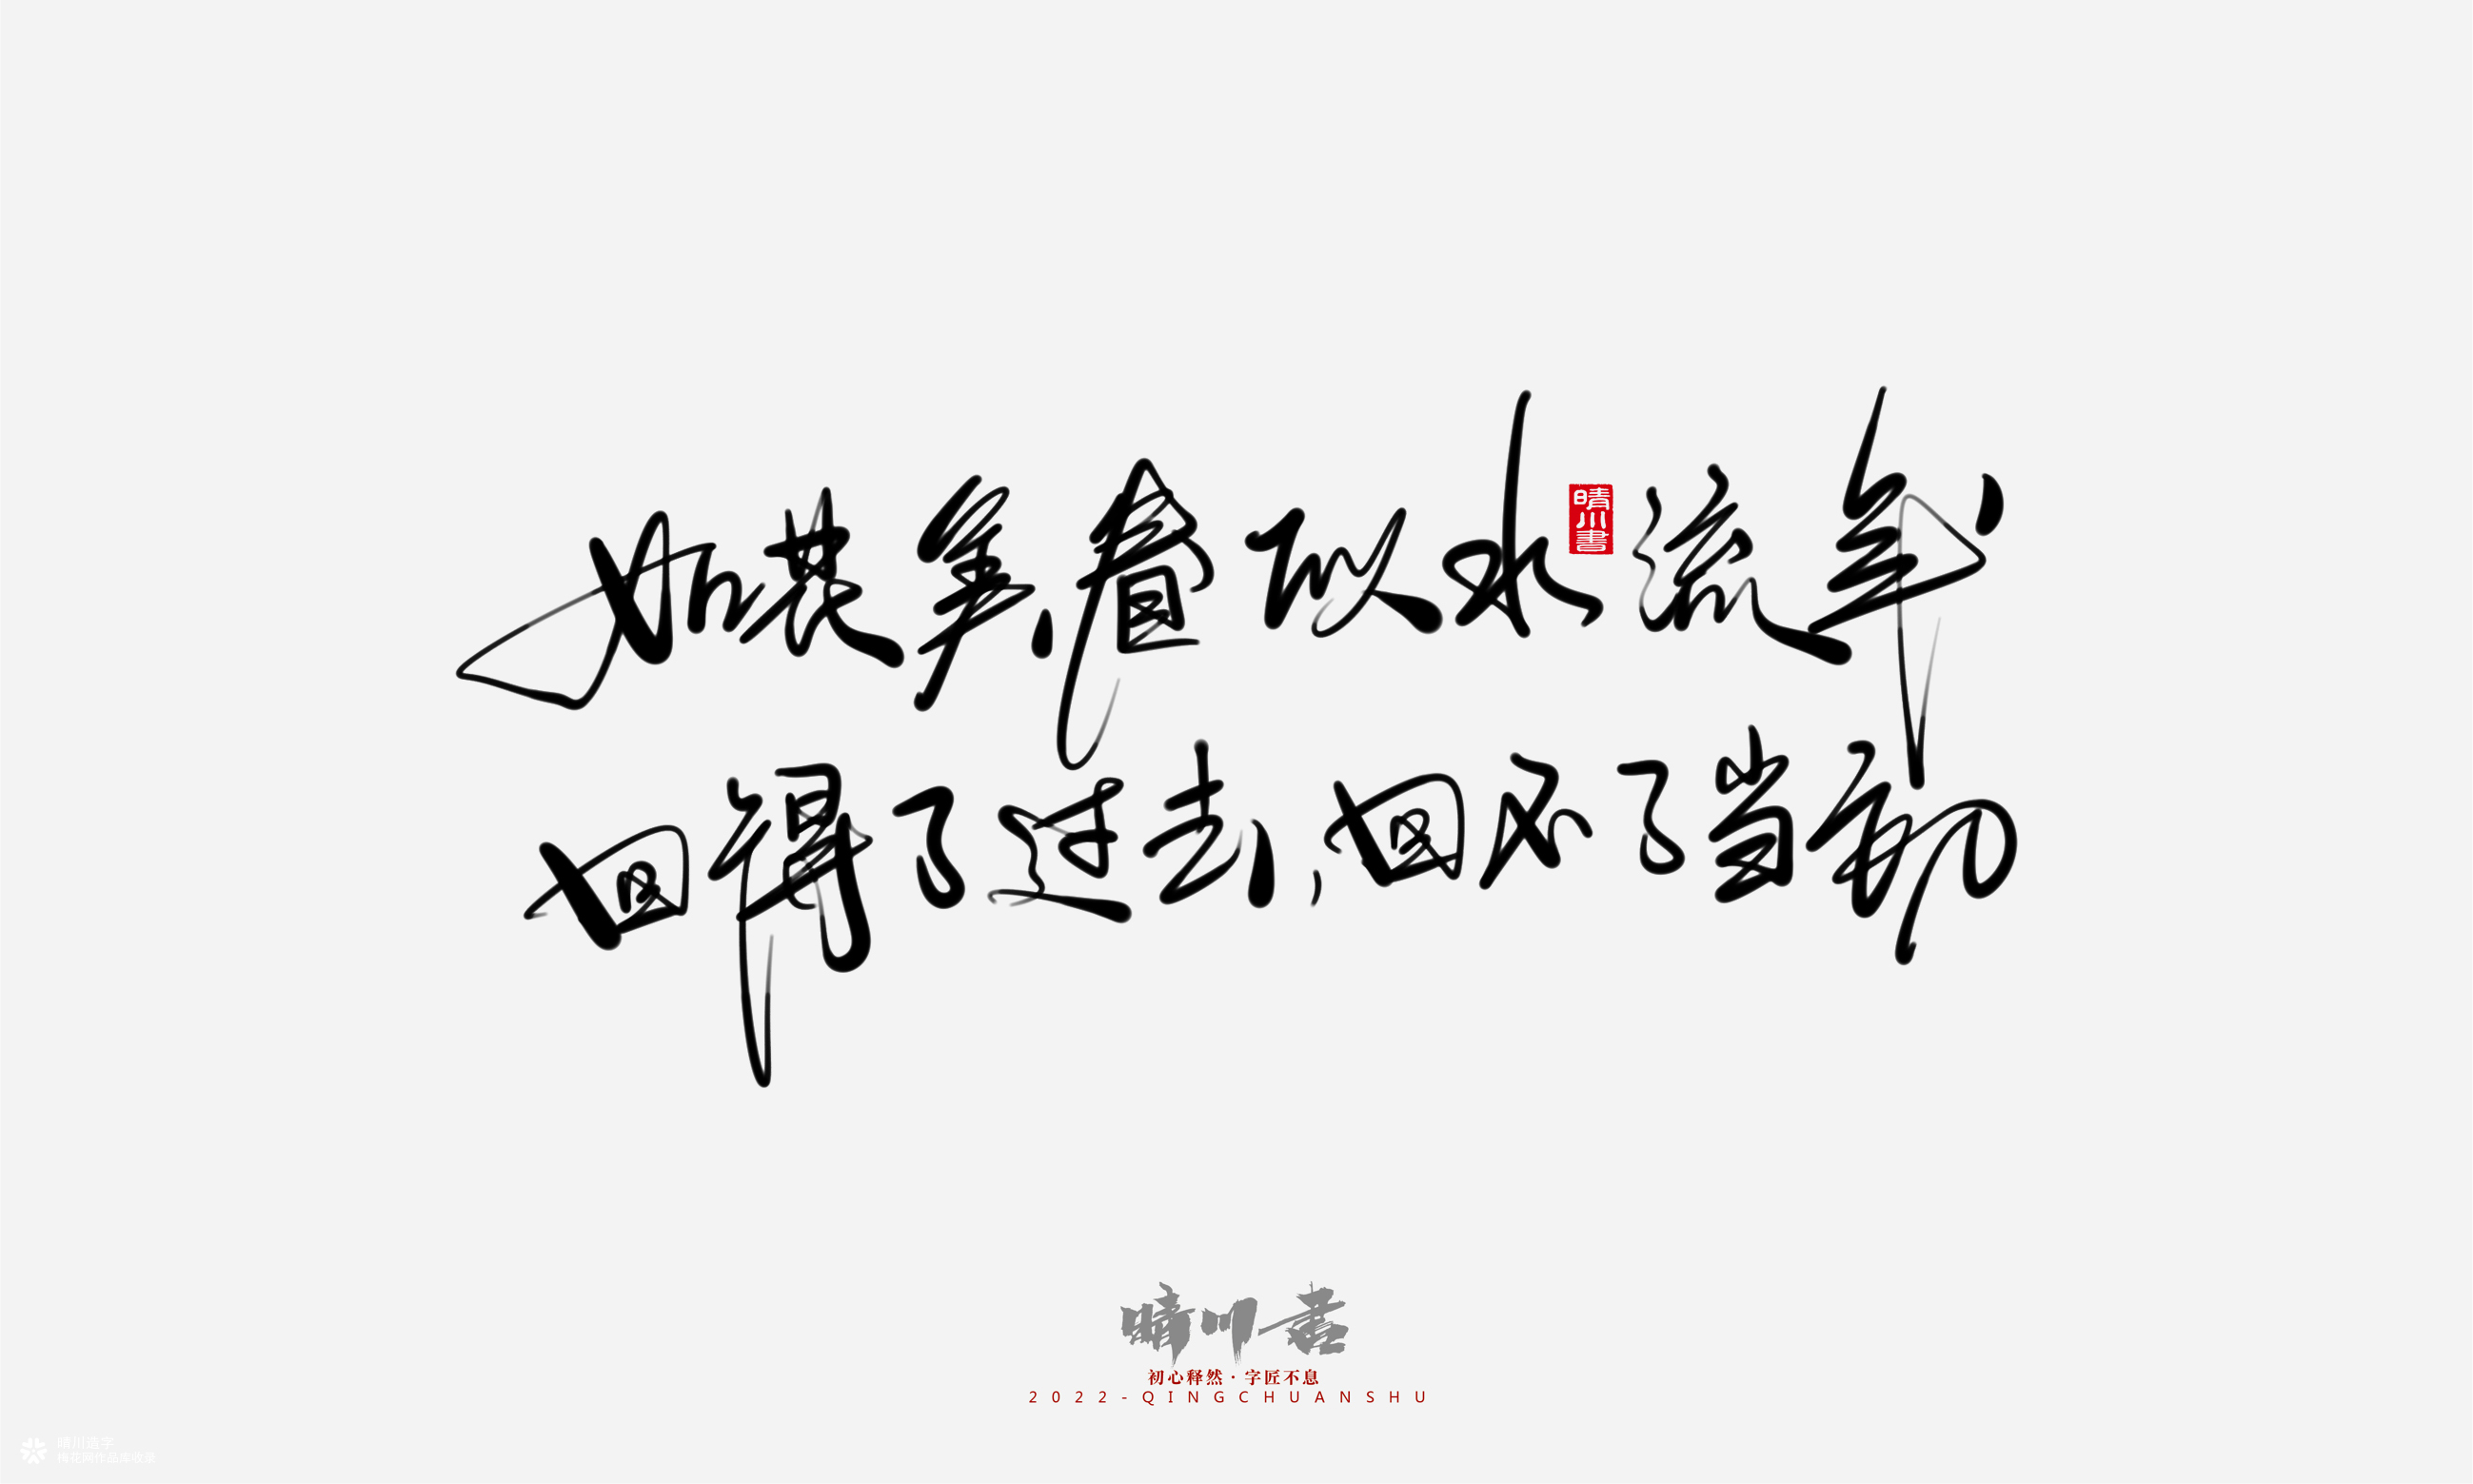 如花美眷似水流年
晴川書
回得了过去,回不了当初
晴川書
初心释然·字匠不息
2022-QINGCHUANSHU
晴川造字